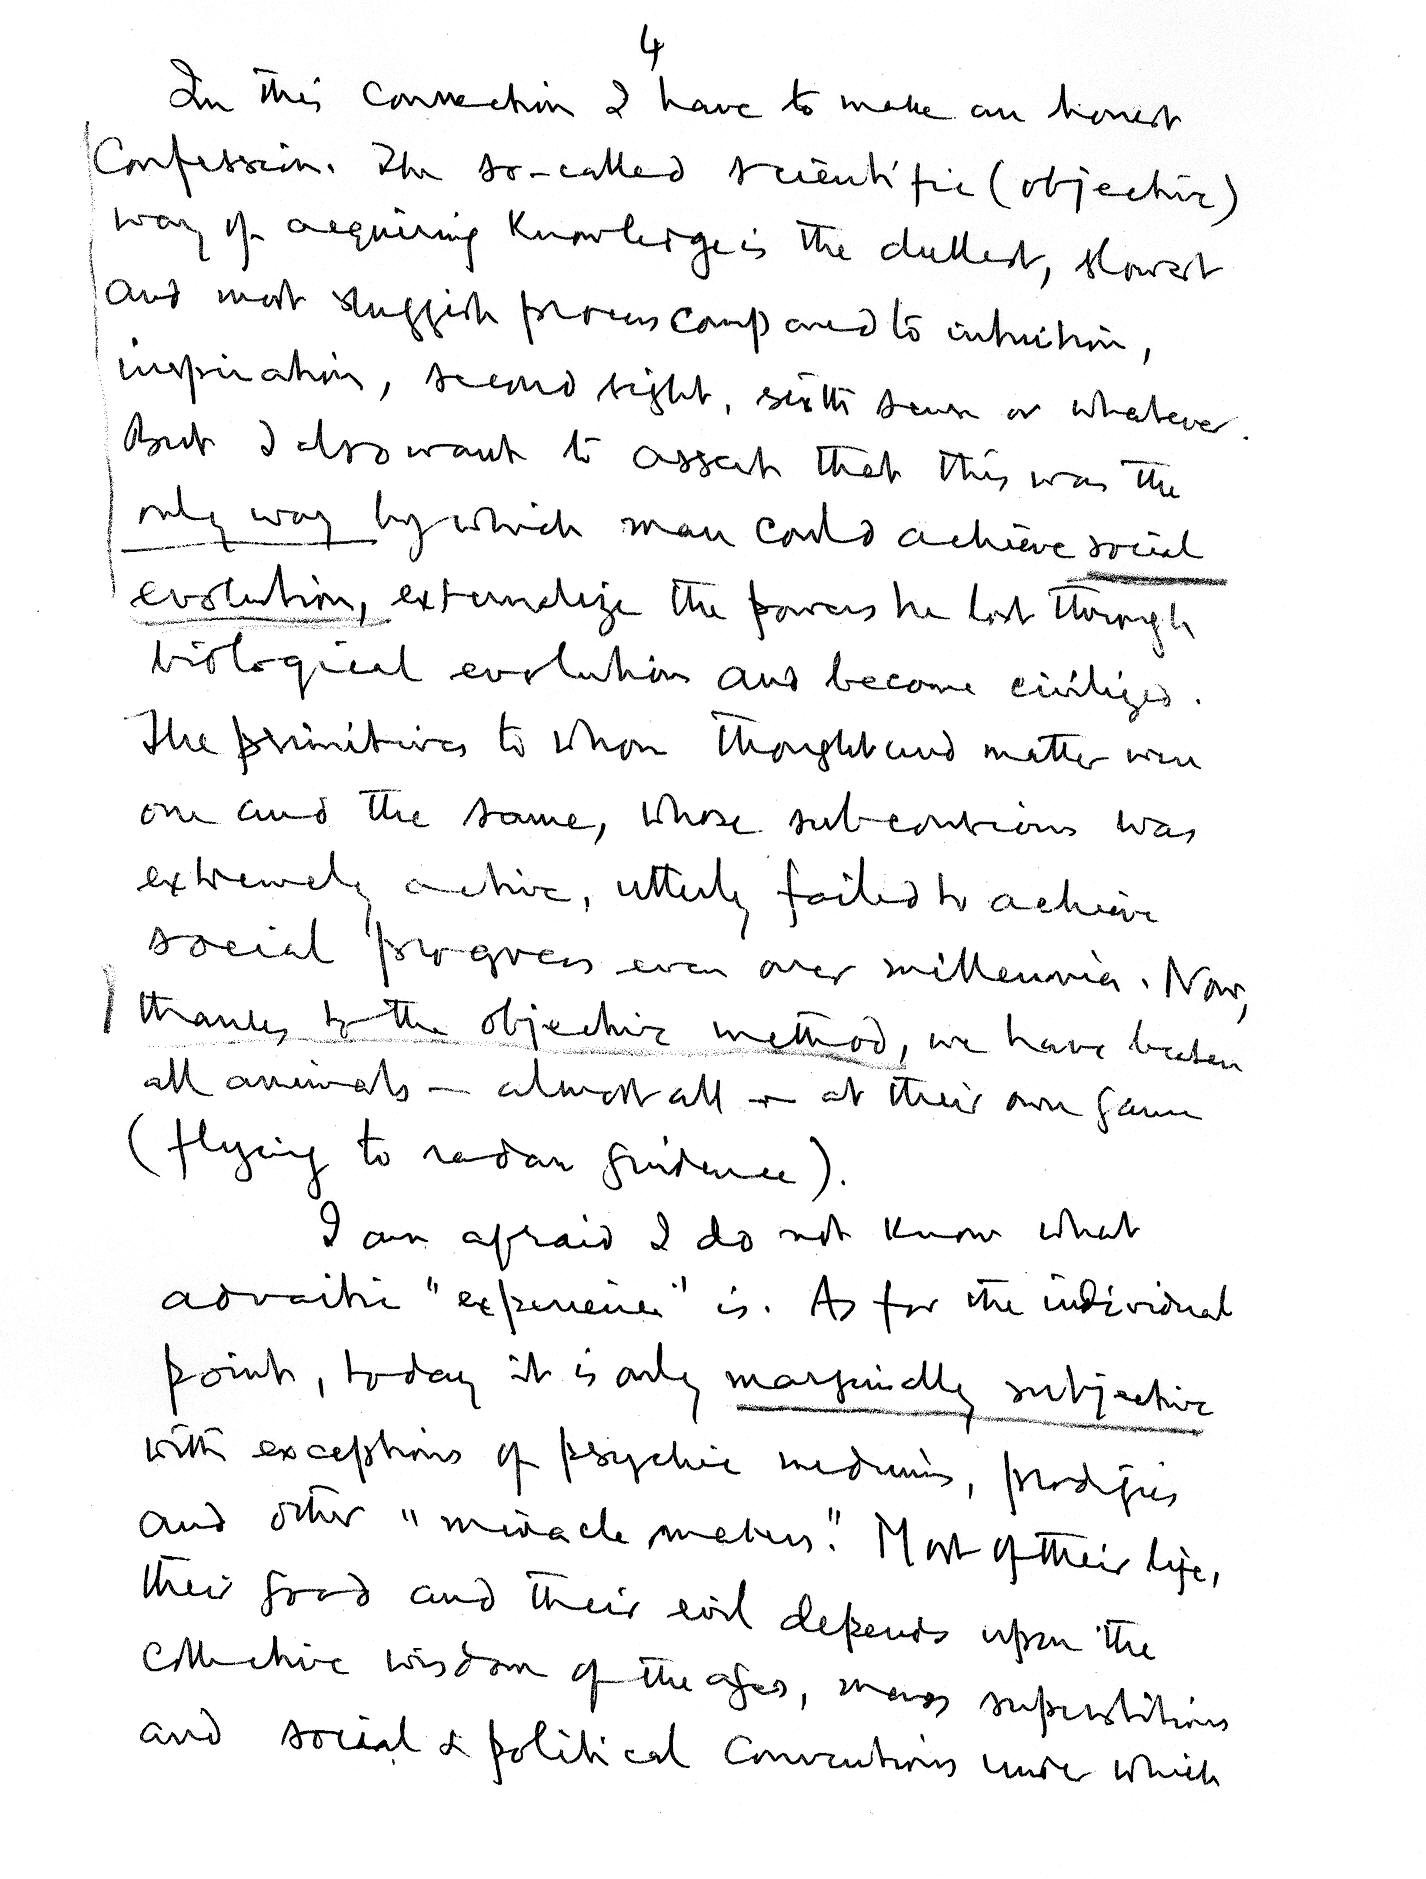 4
In this connection I have to make an honest
Confession. The so-called scientific (objective)
way of acquiring Knowledge is the dullest, slowest
and most sluggish process compared to intuition,
inspiration, second sight, sixth sense or whatever.
But I also want to assert that this was the
only way by which man could achieve social
evolution, externalize the powers he lost through
biological evolution and become civilized.
The primitives to whom thought and matter were
one and the same, whose subconscious was
extremely active, utterly failed to achieve
social progress even over millennia. Now,
thanks to the objective method, we have beaten
all animals – almost all – at their own game
(flying to radar guidance).
I am afraid I do not know what
advaitic "experience" is. As for the individual
point, today it is only marginally subjective
with exceptions of psychic mediums, prodigies
and other "miracle makers." Most of their life,
their good and their evil depends upon the
collective wisdom of the ages, mass superstitions
and social & political conventions under which